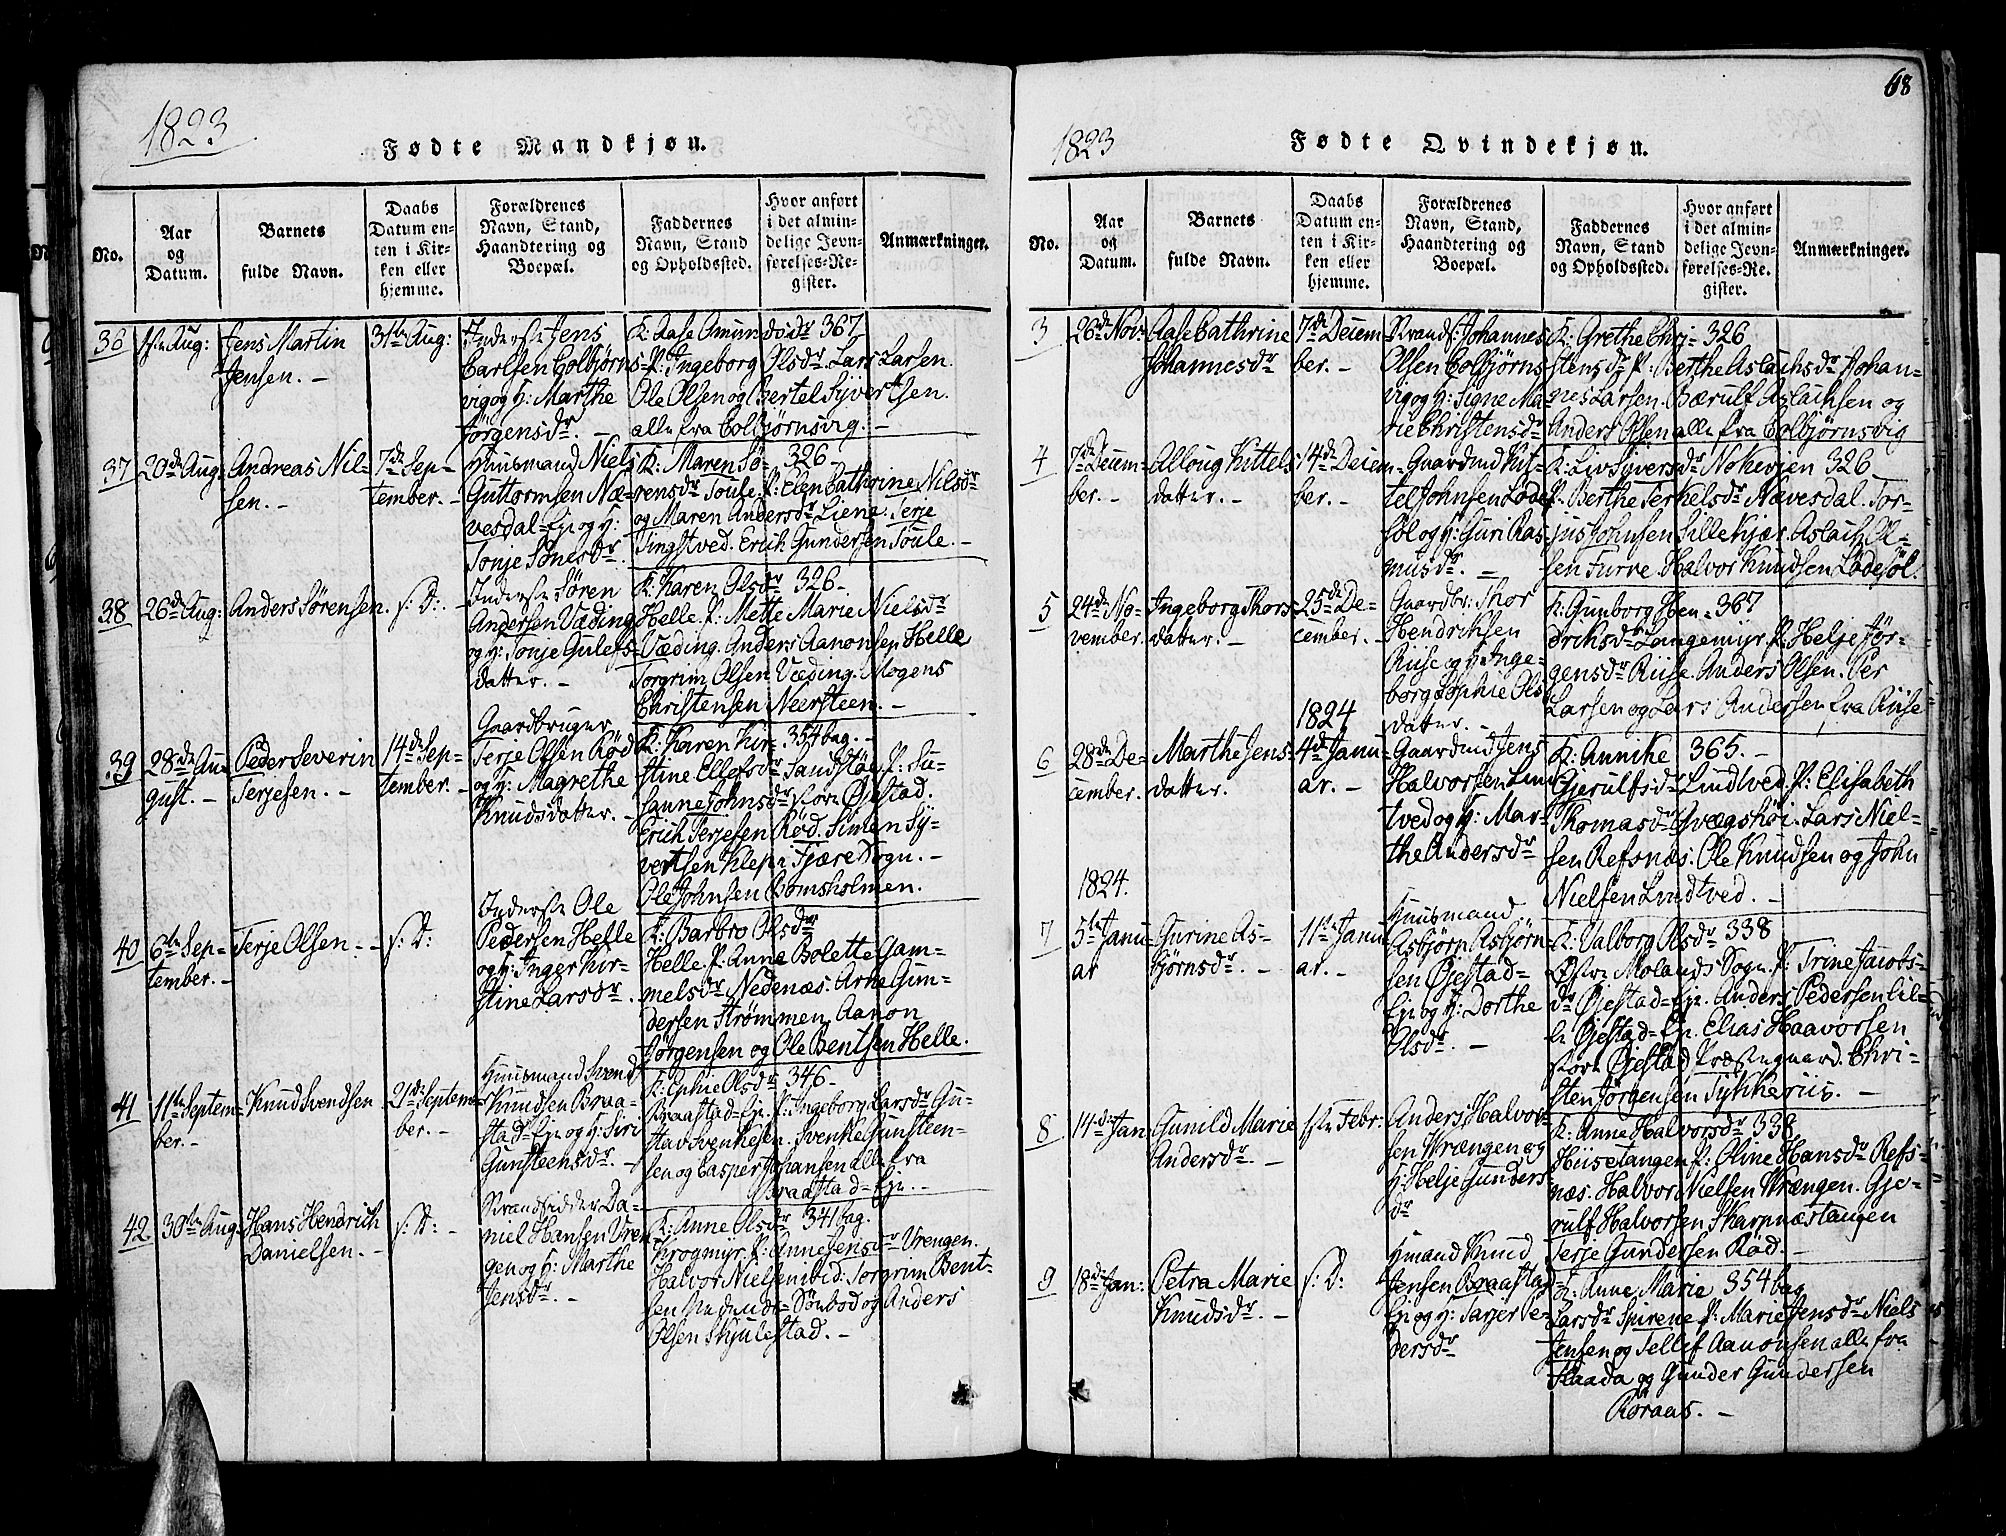 1823
Fødte Mandkjøn.
No.
Aar
og
Datum.
Barnets
fulde Navn.
Daabs
Datum en-
ten i Kir-
ken eller
hjemme.
Forældrenes
Navn, Stand,
Haandtering og
Boepæl.
Faddernes
Navn, Stand
og Opholdssted.
Hvor anført
i det almin-
delige Jevn-
førelses-Re-
gister.
Anmærkninger.
36
Aug:
Jens Martin
Jensen. –
31te Aug:
Inderste Jens
Carlsen Colbjørns-
vig og H: Marthe
Jörgensdr. –
K: Aase Amundsdr 367
P: Ingeborg Olsdr Lars Larsen.
Ole Olsen og Bertel Syvertsen.
alle fra Colbjørnsvig. –
37
20de Aug:
Andreas Nil-
sen. –
7de Sep-
tember. –
Huusmand Niels
Guttormsen Næ-
vesdal=Eje og H:
Tonje Sönesdr.
K: Maren Sö- 326
rensdr Toule. P: Elen Cathrine Nilsdr
og Maren Andersdr Liene. Terje
Tingstved. Erich Gundersen Toule. –
38
26de Aug:
Anders Sörensen.
s: D: –
Inderste Sören
Andersen Væding
og H: Tonje Gulefs-
datter. –
K: Karen Olsdr 326 –
Helle. P: Mette Marie Nielsdr
Væding. Anders Aanonsen Helle
Torgrim Olsen Væding. Mogens
Christensen Neersteen. –
39
28de Au-
gust. –
Peder Severin
Terjesen. –
14de Sep-
tember. –
Gaardbruger
Terje Olsen Röd
og H: Magrethe
Knudsdatter. –
K: Karen Kir- 354 bag. –
stine Ellefsdr Sandstöe P: Su-
sanne Johnsdr store Øjestad.
Erich Terjesen Röd. Simen Sy-
vertsen Klep i Fjære Sogn. –
Ole Johnsen Bomsholmen.
40
6te Sep-
tember. –
Terje Olsen. –
s: D:
Inderste Ole
Pedersen Helle
og H: Inger Kir-
stine Larsdr.
K: Barbro Olsdr
Helle. P: Anne Bolette Gam-
melsdr Nedenæs. Arne Gun-
dersen Strömmen, Aanon
Jörgensen og Ole Bentsen Helle.
41
11te Septem-
ber. –
Knud Svendsen
21de Septem-
ber. –
Huusmand Svend
Knudsen Braa-
stad=Eje og H: Siri
Gunsteensdr. –
K: Ephie Olsdr 346 –
Braastad=Eje. P: Ingeborg Larsdr Gu-
stav Svenkesen. Svenke Gunsteen-
sen og Casper Johansen alle fra
Braastad=Eje. –
42
30te Aug:
Hans Hendrich
Danielsen. –
s: D: –
Strandsidder Da-
niel Hansen Vren-
gen og H: Marthe
Jensdr. –
K: Anne Olsdr 341 bag.
Krogmyr. P: Anne Jensdr Vrengen.
Halvor Nielsen ibid: Torgrim Bent-
sen Sömbod og Anders
Olsen Skjulestad. –
68
1823
Fødte Qvindekjøn.
No.
Aar
og
Datum.
Barnets
fulde Navn.
Daabs
Datum en-
ten i Kir-
ken eller
hjemme.
Forældrenes
Navn, Stand,
Haandtering og
Boepæl.
Faddernes
Navn, Stand
og Opholdssted.
Hvor anført
i det almin-
delige Jevn-
førelses-Re-
gister.
Anmærkninger.
3
26de Nov:
Aase Cathrine
Johannesdr
7de Decem-
ber. –
Strands: Johannes
Olsen Colbjörns-
vig og H: Signe Ma-
rie Christensdr
K: Grethe Chri- 326
stensdr P: Berthe Aslachsdr Johan-
nes Larsen. Bærulf Aslachsen og
Anders Olsen alle fra Colbjörnsvig
4
7de Decem-
ber. –
Alloug Kittels
datter. –
14de Decem-
ber. –
Gaardmd Kit-
tel Johnsen Löde-
söl og H: Guri Ras-
musdr. –
K: Liv Sjversdr No Kevjen 326 –
P: Berthe Terkelsdr Nævesdal. Tor-
jus Johnsen Sillekjær. Aslach Ol-
sen Furre. Halvor Knudsen Lödesöl.
5
24de No-
vember.
Ingeborg Thors
datter. –
25de De-
cember. –
Gaardbr: Thor
Hendrichsen
Riise og H: Inge-
borg Sophie Ols-
datter. –
K: Gunborg Hen- 367
drichsdr Langemyr. P: Helje Jör-
gensdr Riise. Anders Olsen. Per
Larsen og Lars Andersen fra Riise
6
28de De-
cember.
Marthe Jens-
datter.
1824
4de Janu-
ar. –
Gaardmd Jens
Halvorsen Lind-
tved og H: Mar-
the Andersdr
K: Annike 365. –
Gjerulfsdr Lindtved. P: Elisabeth
Thomasdr Qvægshöi. Lars Niel-
sen Refsnæs. Ole Knudsen og John
Nielsen Lindtved. –
1824.
7
5te Janu-
ar
Gurine As-
björnsdr. –
11te Janu-
ar. –
Huusmand
Asbjörn Asbjörn-
sen Øjestad=
Eje og H: Dorthe
Olsdr. –
K: Valborg Olsdr 338
Østre Molands Sogn. P: Trine Jacobs-
dr Øjestad=Eje. Anders Pedersen Lil-
le Øjestad=Eje. Elias Haavorsen
store Øjestad, Præstegaard. Chri-
sten Jörgensen Tykkeriis. –
8
14de Jan.
Gunild Marie
Andersdr. –
1ste Febr:
Anders Halvor-
sen Vrængen og
H: Helje Gunders
dr
K: Anne Halvorsdr 338
Hiisetangen P: Oline Hansdr Refs-
næs. Halvor Nielsen Vrængen. Gje-
rulf Halvorsen Skarpnæstangen
Terje Gundersen Röd. –
9
18de Jan:
Petra Marie
Knudsdr. –
s: D:
Hmand Knud
Jensen Braastad-
Eje og H: Tarjer Pe-
dersdr
K: Anne Marie 354 bag
Larsdr Spirene P: Marie Jensdr Niels
Jensen og Tellef Aanonsen alle fra
Flaada og Gunder Gundersen
Röraas. –